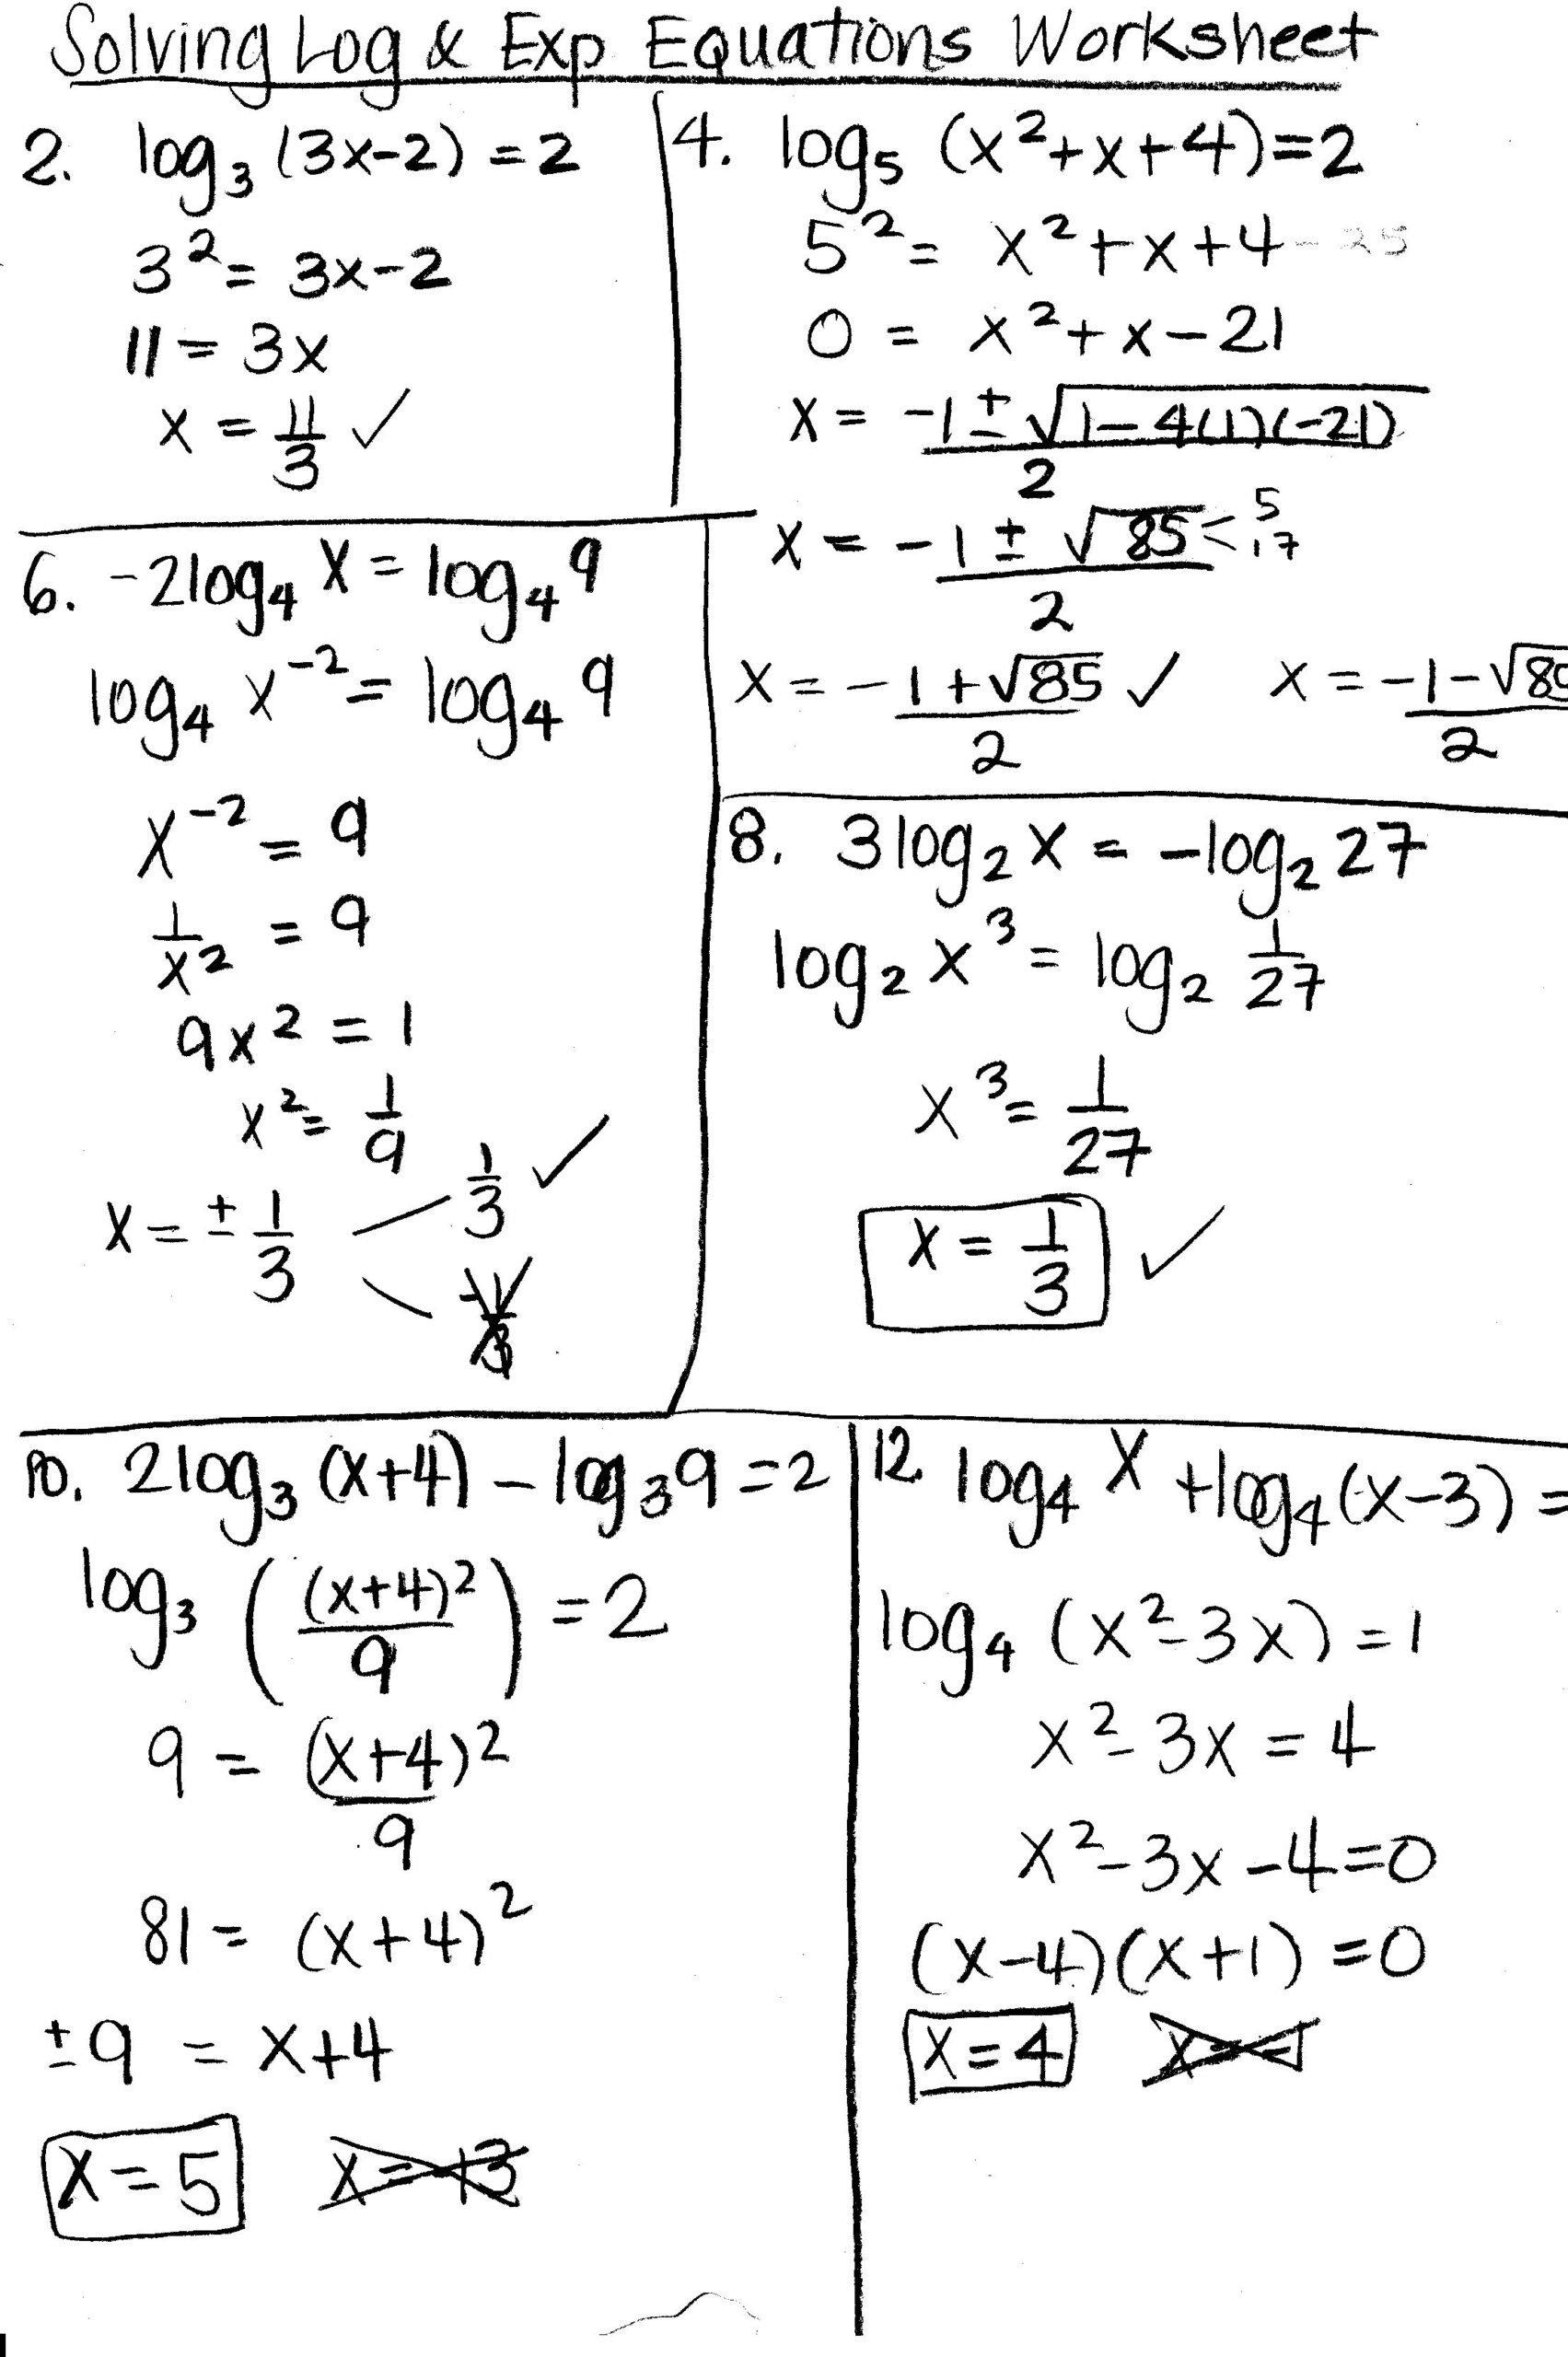 Solving Log & Exp Equations Worksheet
2. log₃ (3x-2) = 2
3² = 3x-2
11 = 3x
x = 11/3 ✓
4. log₅ (x²+x+4)=2
5² = x²+x+4 - 25
0 = x²+x-21
x = (-1 ± √(1-4(1)(-21)))/2
x = (-1 ± √85)/2 < 5 17
x = (-1+√85)/2 ✓ x = (-1-√85)/2
6. -2log₄ x = log₄ 9
log₄ x⁻² = log₄ 9
x⁻² = 9
1/x² = 9
9x² = 1
x² = 1/9
x = ± 1/3
1/3 ✓
-1/3
8. 3log₂ x = -log₂ 27
log₂ x³ = log₂ 1/27
x³ = 1/27
x = 1/3 ✓
10. 2log₃ (x+4) - log₃ 9 = 2
log₃ ((x+4)²/9) = 2
9 = (x+4)²/9
81 = (x+4)²
±9 = x+4
x = 5 x = -13
12 log₄ x + log₄ (x-3) =
log₄ (x²-3x) = 1
x²-3x = 4
x²-3x-4=0
(x-4)(x+1) = 0
x=4 x=-1